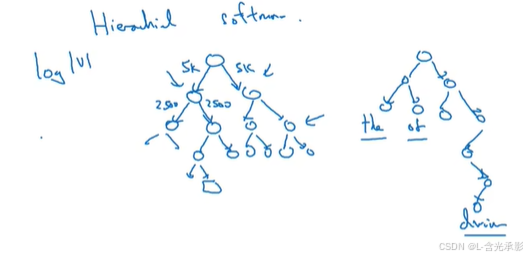 Hierarchical softmax.
log|v|
5k 5k
2500 2500
the of
durian
CSDN @L-含光承影